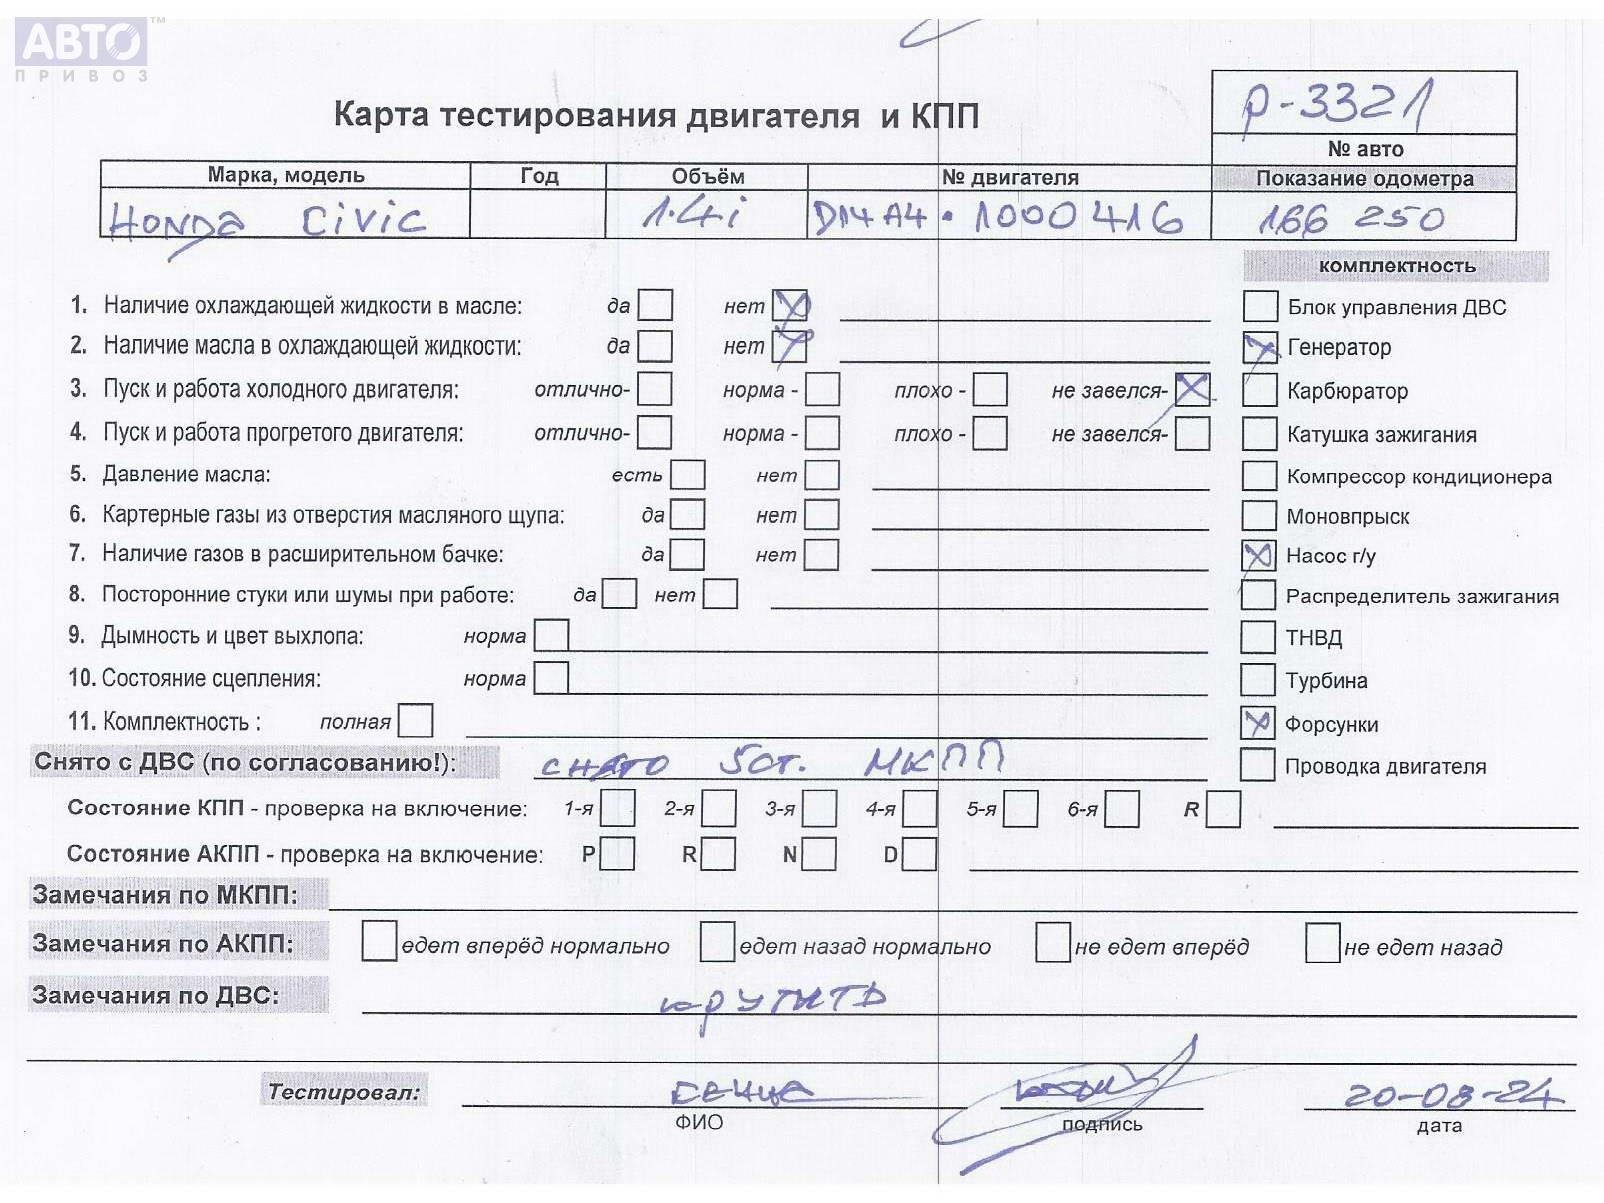 АВТО™
ПРИВОЗ
р-3321
Карта тестирования двигателя и КПП
№ авто
Марка, модель Год Объём № двигателя Показание одометра
Honda Civic 1.4i D14A4 · 1000416 166 250
комплектность
1. Наличие охлаждающей жидкости в масле: да нет Блок управления ДВС
2. Наличие масла в охлаждающей жидкости: да нет Генератор
3. Пуск и работа холодного двигателя: отлично- норма - плохо - не завелся- Карбюратор
4. Пуск и работа прогретого двигателя: отлично- норма - плохо - не завелся- Катушка зажигания
5. Давление масла: есть нет Компрессор кондиционера
6. Картерные газы из отверстия масляного щупа: да нет Моновпрыск
7. Наличие газов в расширительном бачке: да нет Насос г/у
8. Посторонние стуки или шумы при работе: да нет Распределитель зажигания
9. Дымность и цвет выхлопа: норма ТНВД
10. Состояние сцепления: норма Турбина
11. Комплектность : полная Форсунки
Снято с ДВС (по согласованию!): снято 5ст. МКПП Проводка двигателя
Состояние КПП - проверка на включение: 1-я 2-я 3-я 4-я 5-я 6-я R
Состояние АКПП - проверка на включение: P R N D
Замечания по МКПП:
Замечания по АКПП: едет вперёд нормально едет назад нормально не едет вперёд не едет назад
Замечания по ДВС: крутить
Тестировал: 20-08-24
ФИО подпись дата